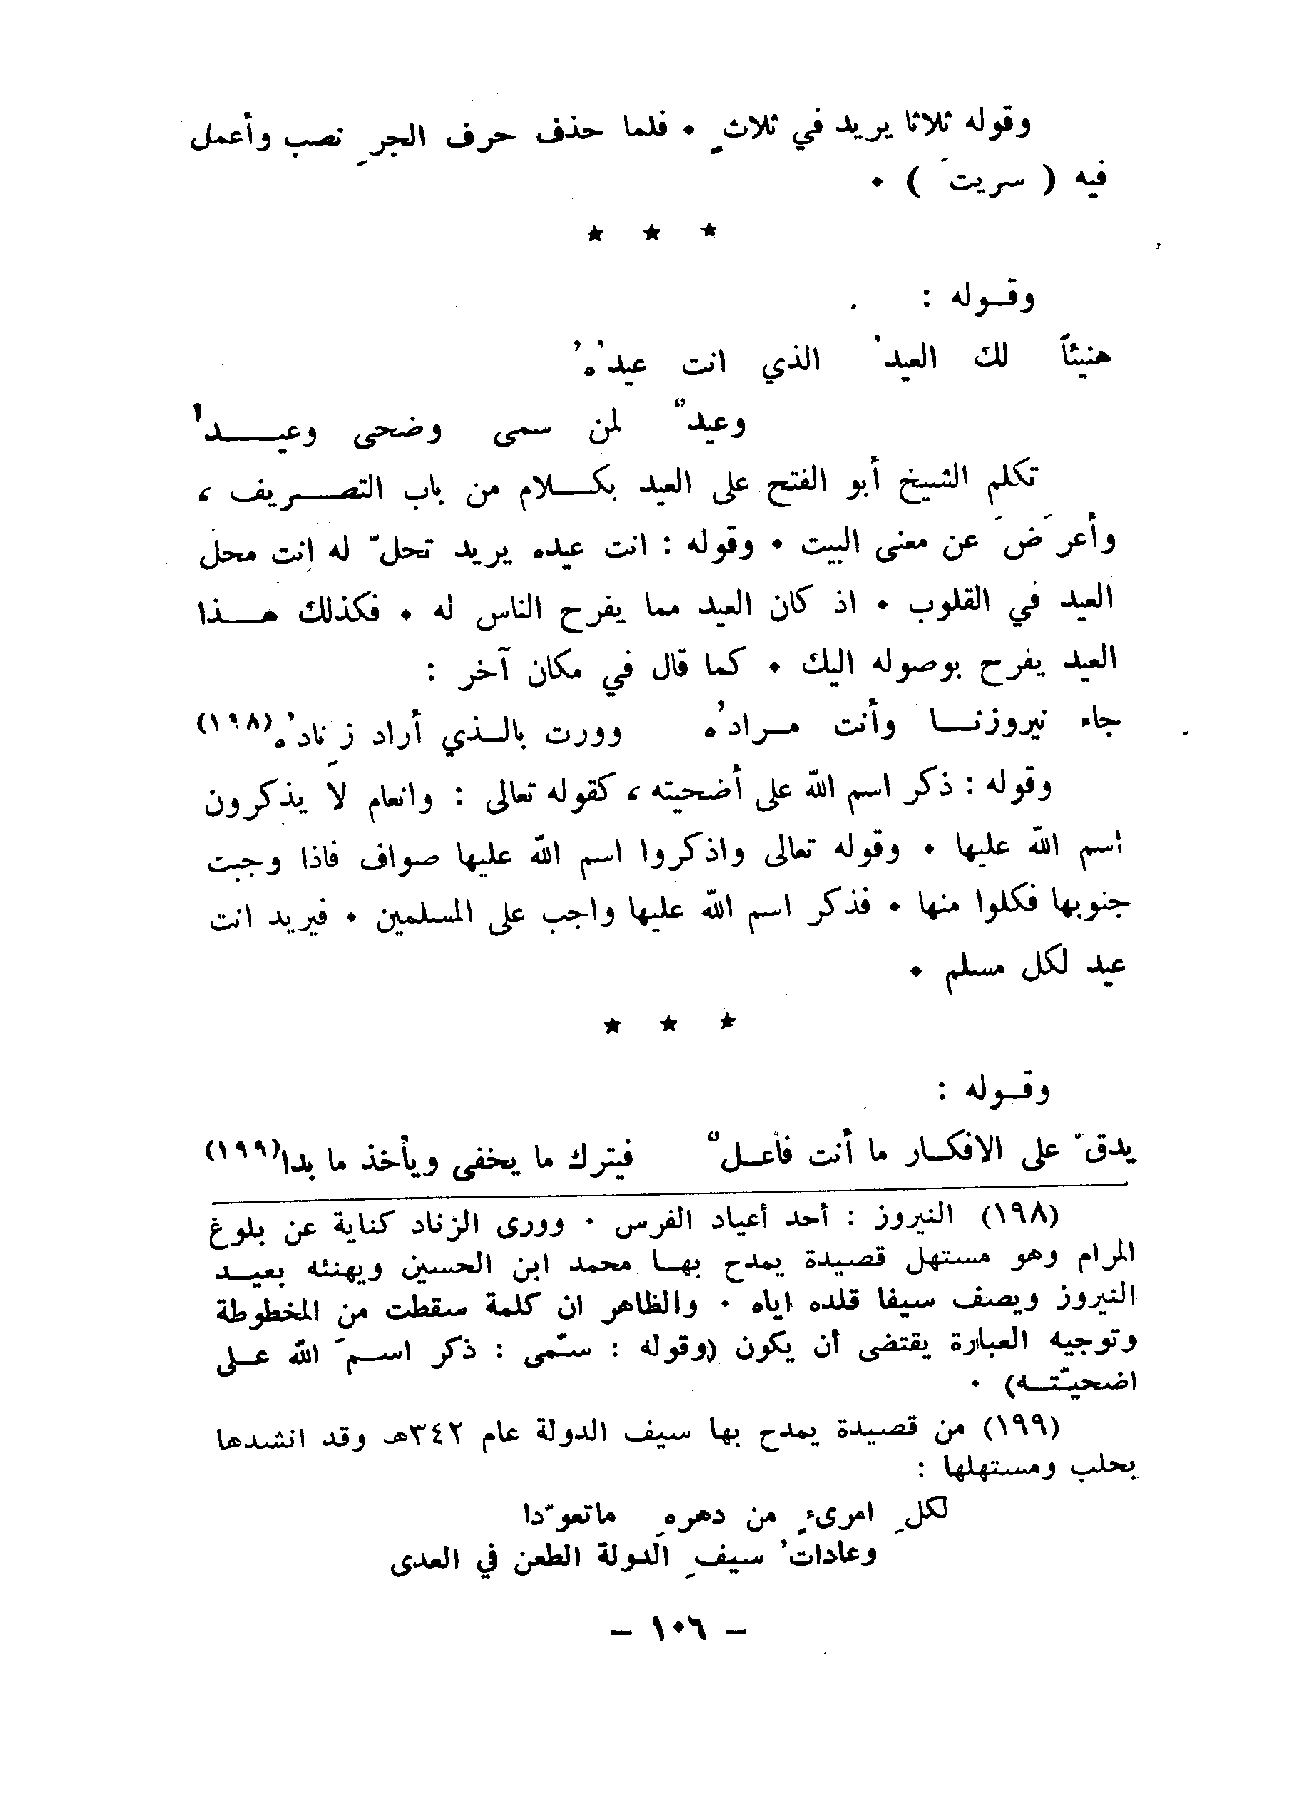 وقوله ثلاثا يريد في ثلاثٍ ٠ فلما حذف حرف الجرِ نصب وأعمل
فيه ( سريتَ ) ٠
★ ★ ★
وقـوله :
هنيئاً لك العيدُ الذي انت عيدُهُ
وعيدٌ لمن سمى وضحى وعيـــدا
تكلم الشيخ أبو الفتح على العيد بكـــلام من باب التصـــريف ،
وأعرَضَ عن معنى البيت ٠ وقوله : انت عيده يريد تحلّ له انت محل
العيد في القلوب ٠ اذ كان العيد مما يفرح الناس له ٠ فكذلك هـــذا
العيد يفرح بوصوله اليك ٠ كما قال في مكان آخر :
جاء نيروزنـــا وأنت مـرادُه وورت بالـذي أراد زِنادُه(١٩٨)
وقوله : ذكر اسم الله على أضحيته ، كقوله تعالى : وانعام لا يذكرون
اسم الله عليها ٠ وقوله تعالى واذكروا اسم الله عليها صواف فاذا وجبت
جنوبها فكلوا منها ٠ فذكر اسم الله عليها واجب على المسلمين ٠ فيريد انت
عيد لكل مسلم ٠
★ ★ ★
وقـوله :
يدقّ على الافكـار ما أنت فاعـلٌ فيترك ما يخفى ويأخذ ما بدا(١٩٩)
(١٩٨) النيروز : أحد أعياد الفرس ٠ وورى الزناد كناية عن بلوغ
المرام وهو مستهل قصيدة يمدح بهـا محمد ابن الحسين ويهنئه بعيـد
النيروز ويصف سيفا قلده اياه ٠ والظاهر ان كلمة سقطت من المخطوطة
وتوجيه العبارة يقتضى أن يكون (وقوله : سمّى : ذكر اسـمَ الله عـلى
اضحيّتـه) ٠
(١٩٩) من قصيدة يمدح بها سيف الدولة عام ٣٤٢هـ وقد انشدها
بحلب ومستهلها :
لكلِ امرىءٍ من دهرهِ ماتعوّدا
وعاداتُ سيفِ الدولة الطعن في العدى
– ١٠٦ –